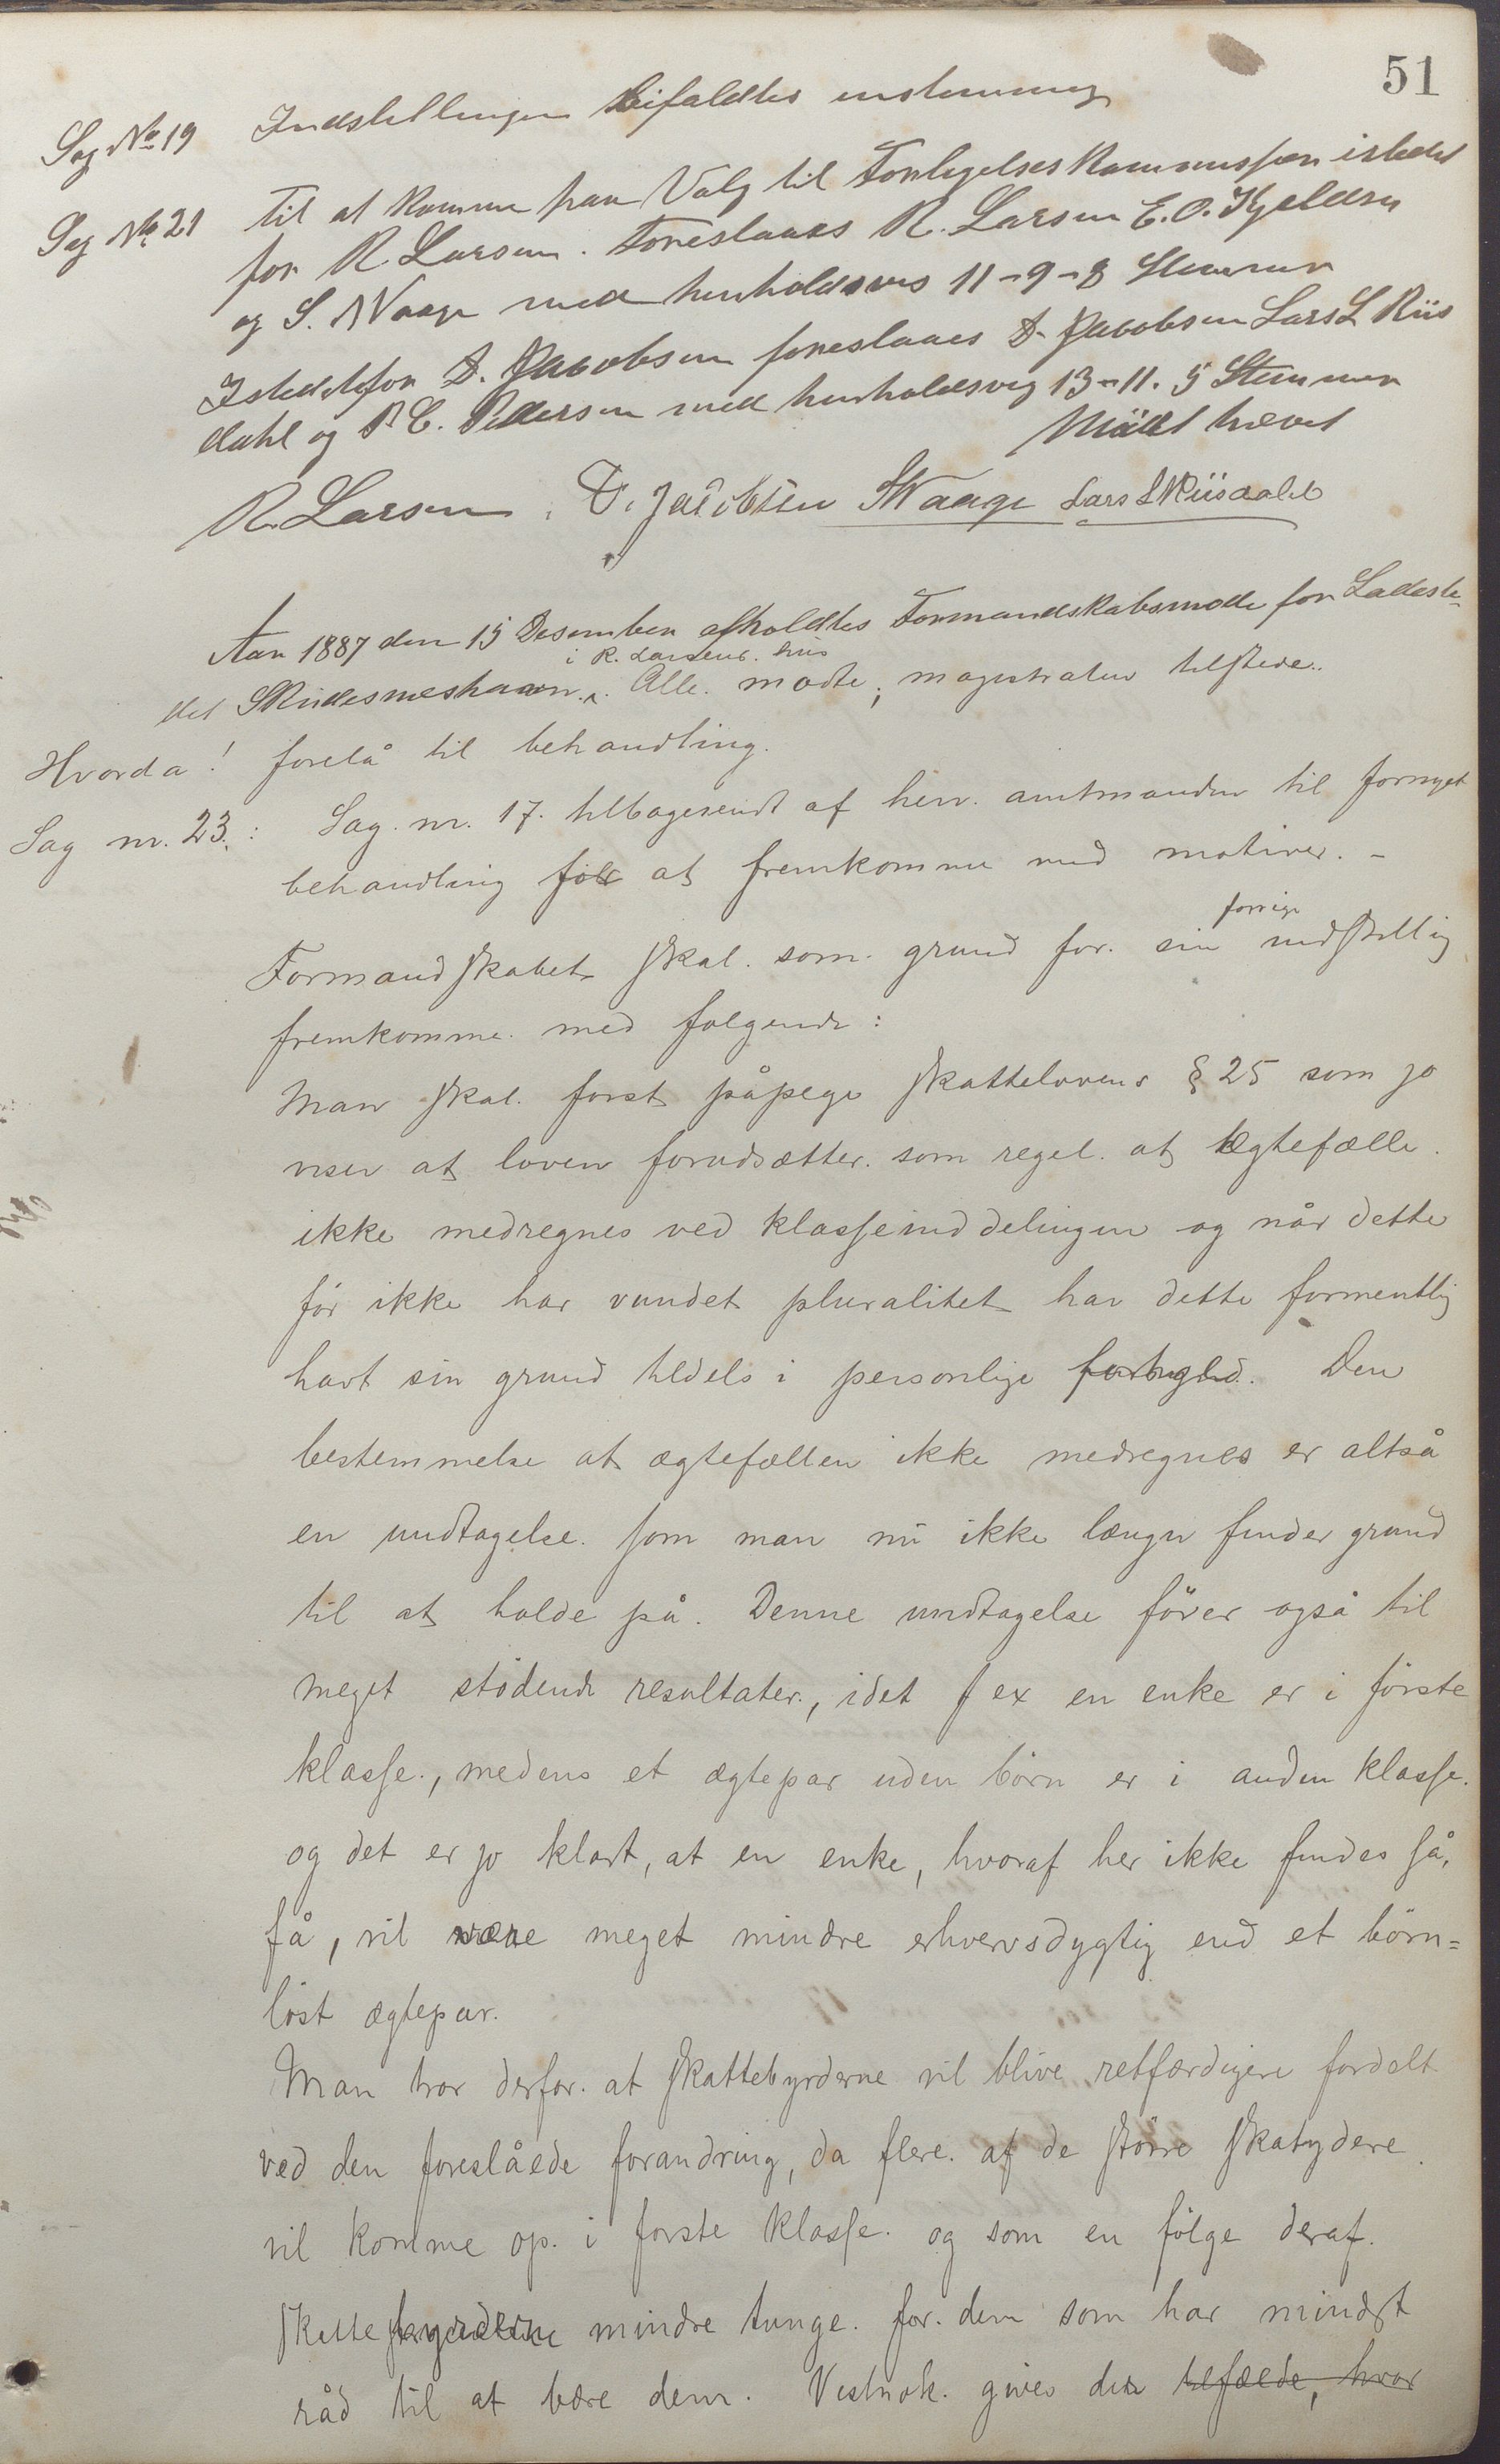 51
Sag No 19 Indstillingen bifaldtes enstemmig
Sag No 21 Til at komme paa Valg til Forligelseskommissjon istedet
for R Larsen. Foreslaaes R. Larsen E. O. Kjeldsen
og S. Waage med henholdsvis 11 - 9 - 8 Stemmer
Istedetfor D. Jacobsen foreslaaes D. Jacobsen Lars L Riis
dahl og P. C. Pedersen med henholdsvis 13 - 11. 5 Stemmer
Mødet hævet
R. Larsen, D. Jacobsen SWaage Lars L Riisdahl
Aar 1887 den 15 Desember afholdtes Formandskabsmøde for Ladeste-
i R. Larsens. hus
det Skudesneshavn. Alle. mødte; magistraten tilstede..
Hvorda! forelå til behandling.
Sag nr. 23.: Sag. nr. 17. tilbagesendt af herr. amtmanden til fornyet
behandling for at fremkomme med motiver. -
forrige
Formandskabet skal. som. grund for. sin indstillig
fremkomme. med følgende:
Man skal. først påpege skattelovens § 25 som jo
viser at loven forudsætter. som regel. at ægtefælle.
ikke medregnes ved klasseinddelingen og når dette
før ikke har vundet pluralitet har dette formentlig
havt sin grund tildels i personlige forhold. Den
bestemmelse at ægtefællen ikke medregnes er altså
en undtagelse. som man nu ikke længer finder grund
til at holde på. Denne undtagelse fører også til
meget stødende resultater., idet f ex en enke er i første
klasse., medens et ægtepar uden børn er i anden klasse.
og det er jo klart, at en enke, hvoraf her ikke findes så,
få, vil være meget mindre erhvervsdygtig end et børn=
løst ægtepar.
Man tror derfor. at skattebyrderne vil blive retfærdigere fordelt
ved den foreslåede forandring, da flere. af de større skatydere.
vil komme op. i første klasse. og som en følge deraf.
skattebyrderne mindre tunge. for. dem som har mindst
råd til at bære dem. Vistnok. gives der tilfælde, hvor